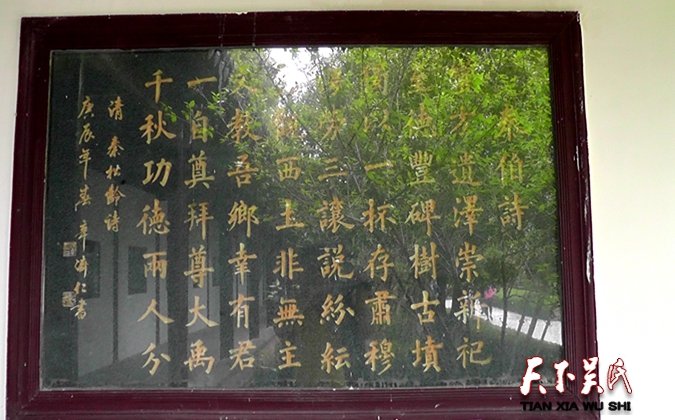 泰伯詩
方遺澤崇新祀
至德豐碑樹古墳
以一杯存肅穆
三讓說紛紜
西土非無主
文教吾鄉幸有君
一自奠拜尊大禹
千秋功德兩人分
清 秦松齡詩
庚辰年
天下吴氏
TIAN XIA WU SHI